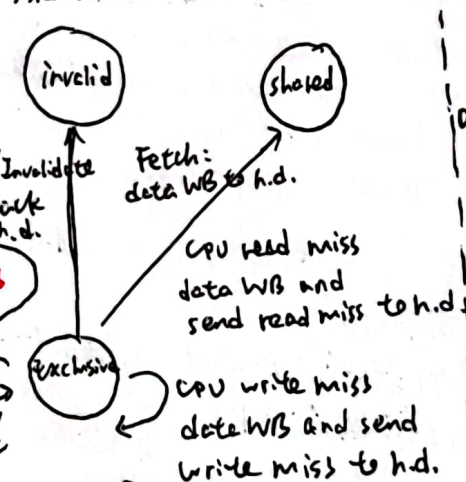 invalid
shared
Invalidate
Fetch:
data WB to h.d.
h.d.
CPU read miss
data WB and
send read miss to h.d.
Exclusive
CPU write miss
data WB and send
write miss to h.d.